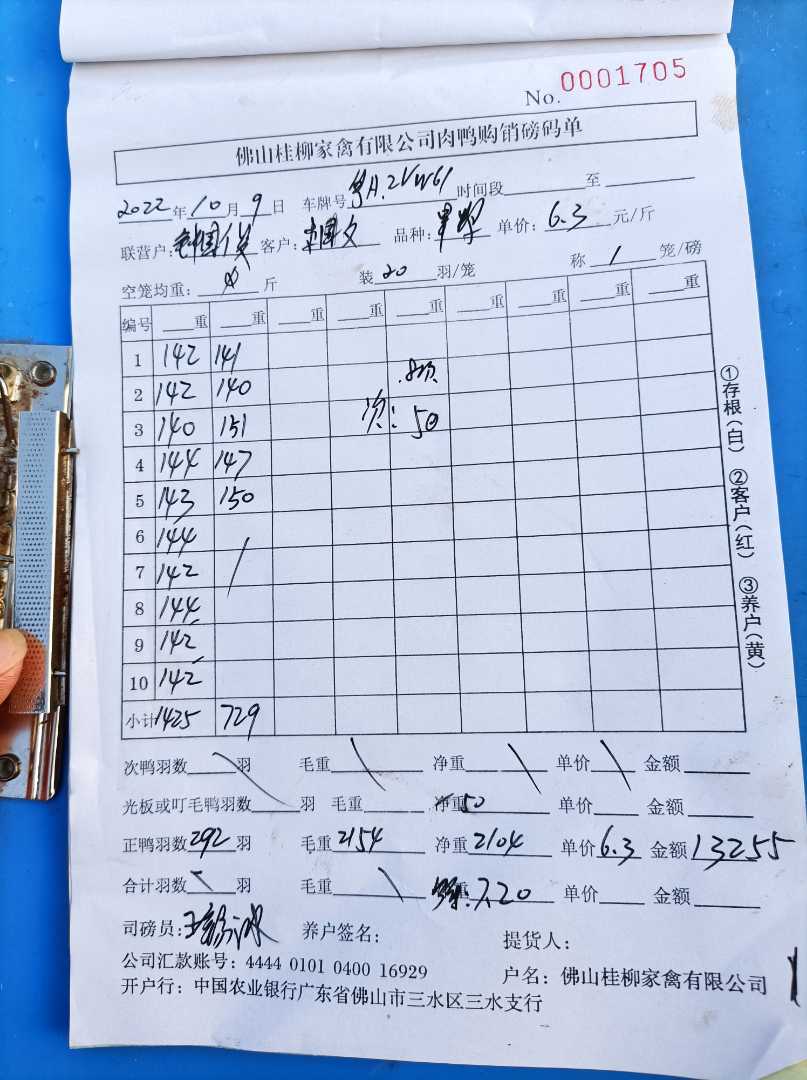 No. 0001705
佛山桂柳家禽有限公司肉鸭购销磅码单
2022年10月9日 车牌号粤A.2VW61时间段 至
联营户: 客户: 品种: 单价:6.3元/斤
空笼均重: 斤 装20羽/笼 称1笼/磅
编号 重 重 重 重 重 重 重 重
1 142 141
2 142 140
3 140 151 次: 50
4 144 147
5 143 150
6 144
7 142
8 144
9 142
10 142
小计 1425 729
①存根(白) ②客户(红) ③养户(黄)
次鸭羽数 羽 毛重 净重 单价 金额
光板或叮毛鸭羽数 羽 毛重 净重50 单价 金额
正鸭羽数292羽 毛重2154 净重2104 单价6.3 金额13255
合计羽数 羽 毛重 重:7.20 单价 金额
司磅员: 养户签名: 提货人:
公司汇款账号: 4444 0101 0400 16929 户名: 佛山桂柳家禽有限公司
开户行: 中国农业银行广东省佛山市三水区三水支行